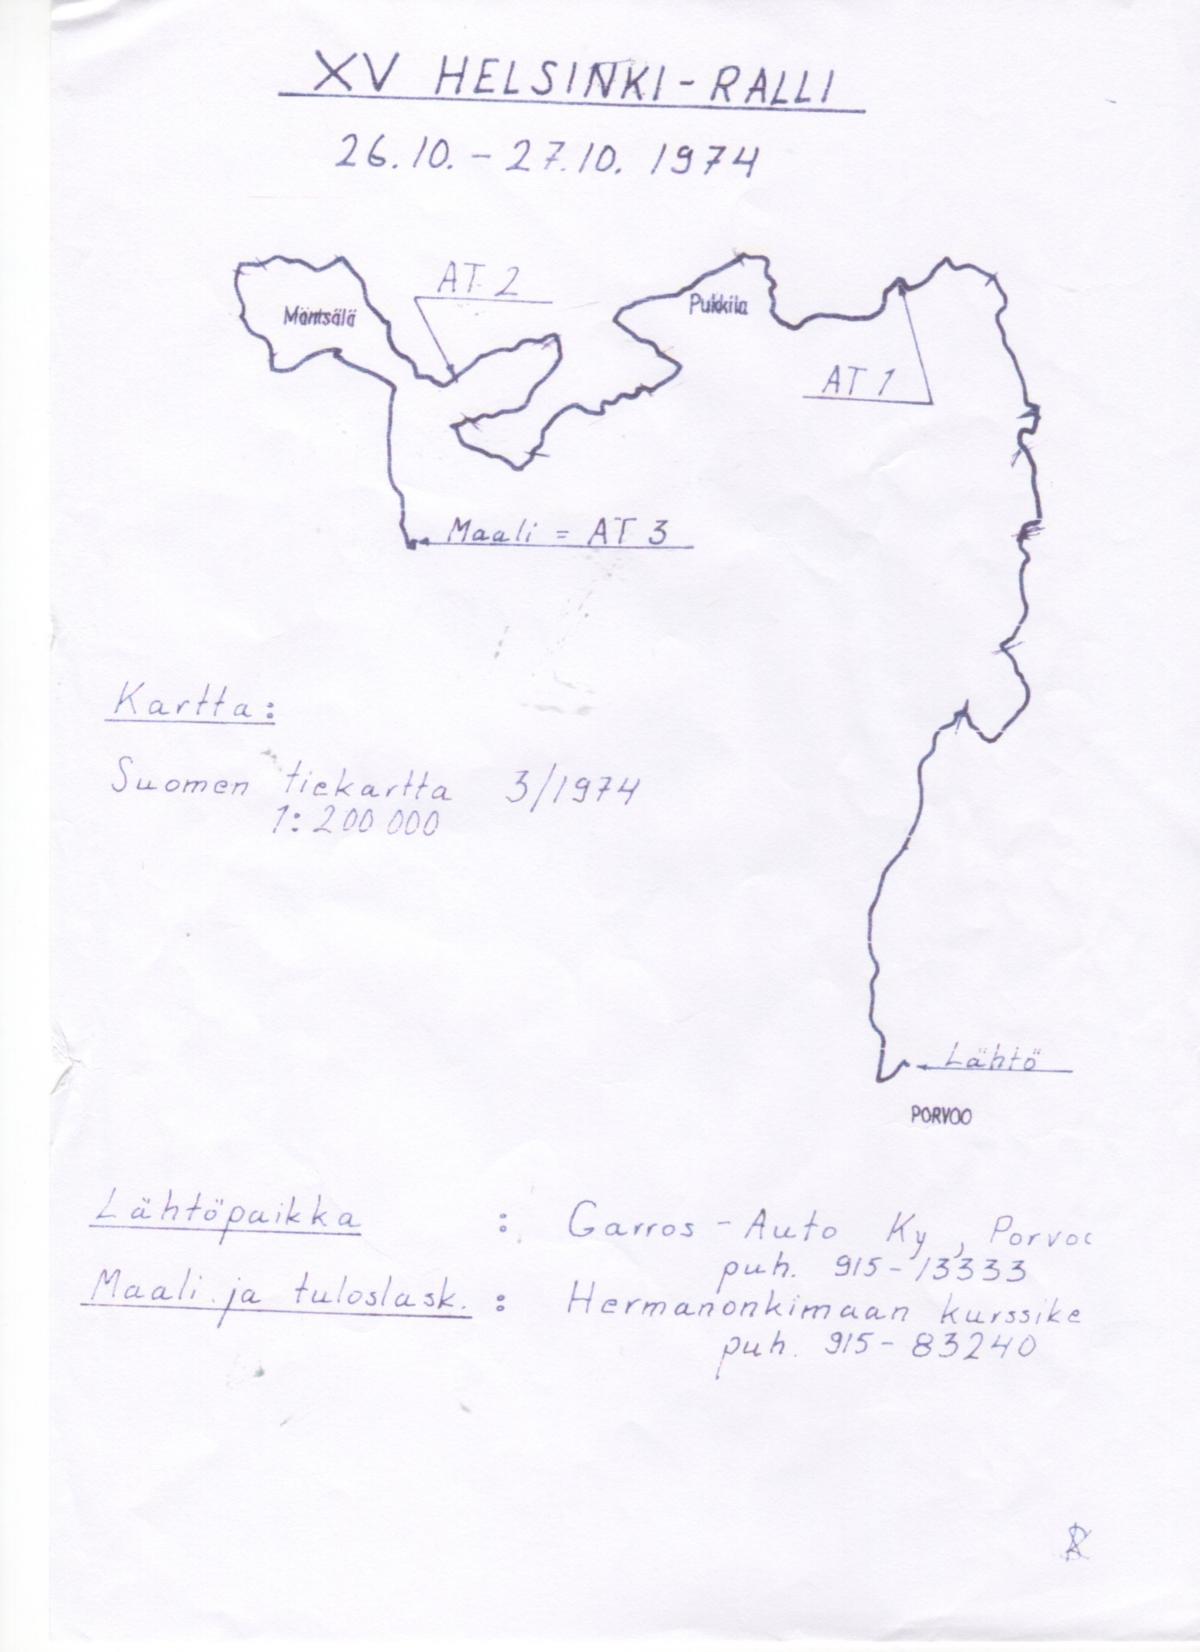 XV HELSINKI-RALLI
26.10. - 27.10. 1974
AT 2
Mäntsälä
Pukkila
AT 1
Maali = AT 3
Kartta:
Suomen tiekartta 3/1974
1:200 000
Lähtö
PORVOO
Lähtöpaikka : Garros-Auto Ky, Porvoo
puh. 915-13333
Maali ja tuloslask. : Hermanonkimaan kurssike
puh. 915-83240